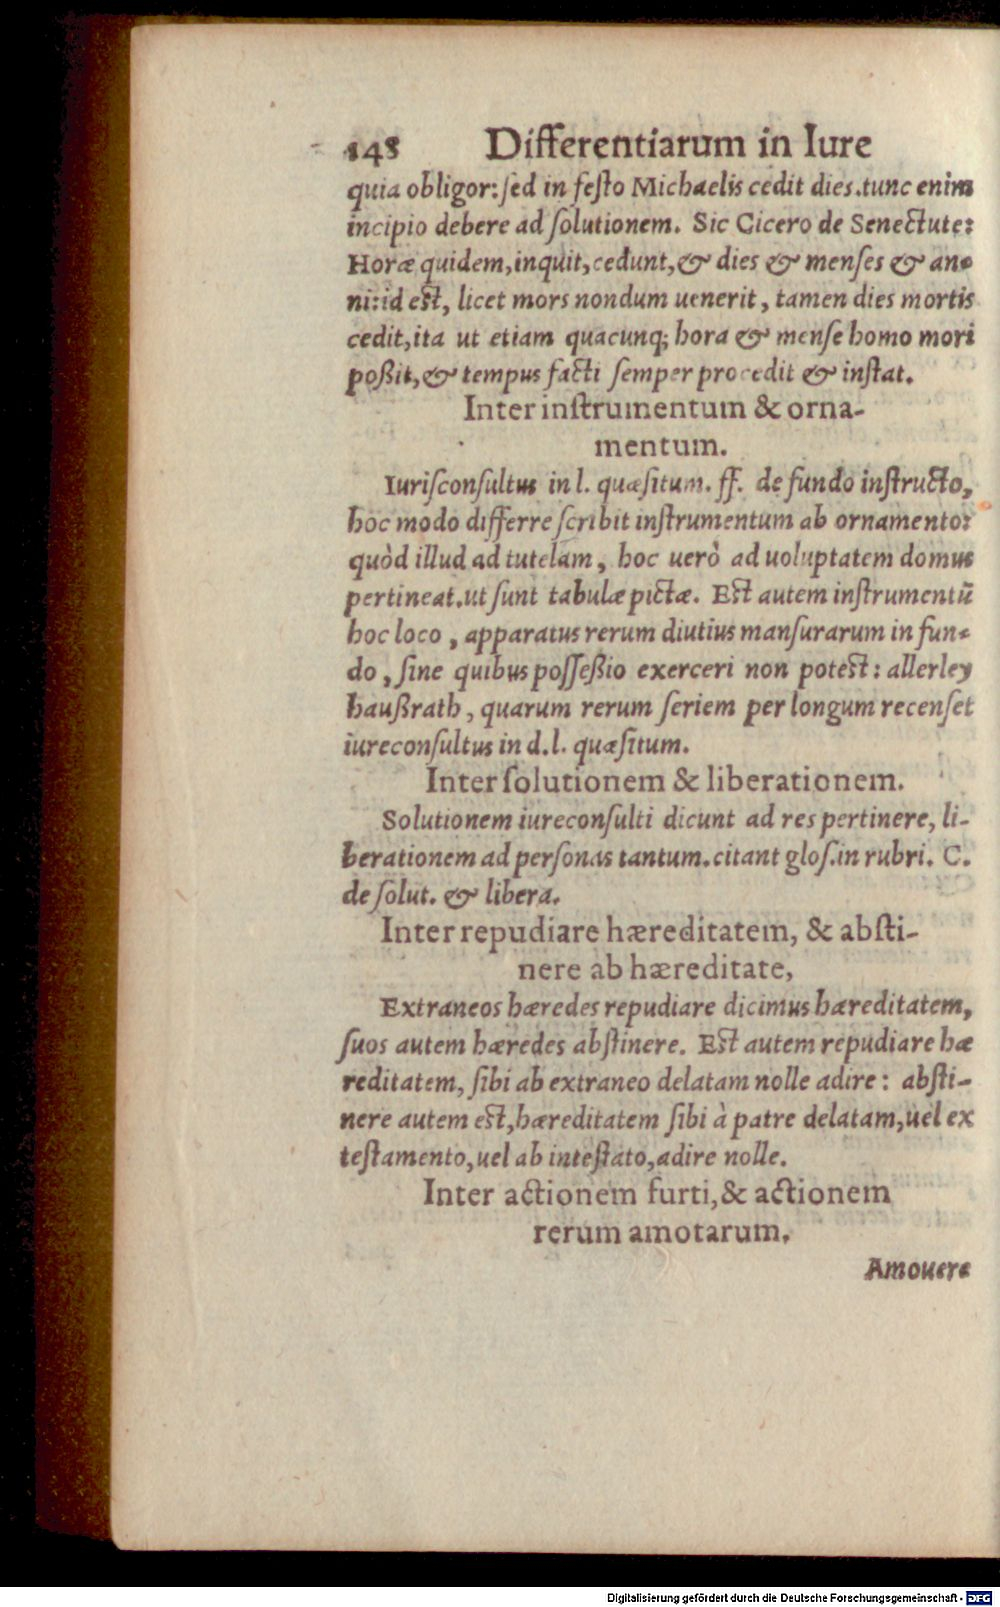 148 Differentiarum in Iure
quia obligor: ſed in feſto Michaelis cedit dies. tunc enim
incipio debere ad ſolutionem. Sic Cicero de Senectute:
Horæ quidem, inquit, cedunt, & dies & menſes & an-
ni: id est, licet mors nondum uenerit, tamen dies mortis
cedit, ita ut etiam quacunq; hora & menſe homo mori
poßit, & tempus facti ſemper procedit & inſtat.
Inter inſtrumentum & orna-
mentum.
Iuriſconſultus in l. quæſitum. ff. de fundo inſtructo,
hoc modo differre ſcribit inſtrumentum ab ornamento:
quòd illud ad tutelam, hoc uerò ad uoluptatem domus
pertineat. ut ſunt tabulæ pictæ. Est autem inſtrumentũ
hoc loco, apparatus rerum diutius manſurarum in fun-
do, ſine quibus poſſeßio exerceri non potest: allerley
haußrath, quarum rerum ſeriem per longum recenſet
iureconſultus in d. l. quæſitum.
Inter ſolutionem & liberationem.
Solutionem iureconſulti dicunt ad res pertinere, li-
berationem ad perſonas tantum. citant gloſ. in rubri. C.
de ſolut. & libera.
Inter repudiare hæreditatem, & abſti-
nere ab hæreditate,
Extraneos hæredes repudiare dicimus hæreditatem,
ſuos autem hæredes abſtinere. Est autem repudiare hæ
reditatem, ſibi ab extraneo delatam nolle adire: abſti-
nere autem est, hæreditatem ſibi à patre delatam, uel ex
teſtamento, uel ab inteſtato, adire nolle.
Inter actionem furti, & actionem
rerum amotarum.
Amouere
Digitalisierung gefördert durch die Deutsche Forschungsgemeinschaft - DFG